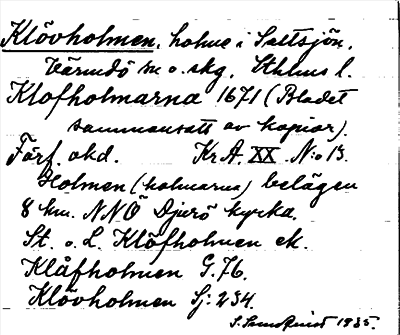 Klövholmen, holme i Saltsjön,
Värmdö sn o. skg, Sthlms l.
Klofholmarna 1671 (Bladet
sammansatt av kopior).
Förf. okd. Kr A. XX. N:o 13.
Holmen (holmarna) belägen
8 km. NNÖ Djurö kyrka.
St. o. L. Klöfholmen ek.
Klåfholmen G. 76.
Klövholmen Sj: 234.
S. 1935.